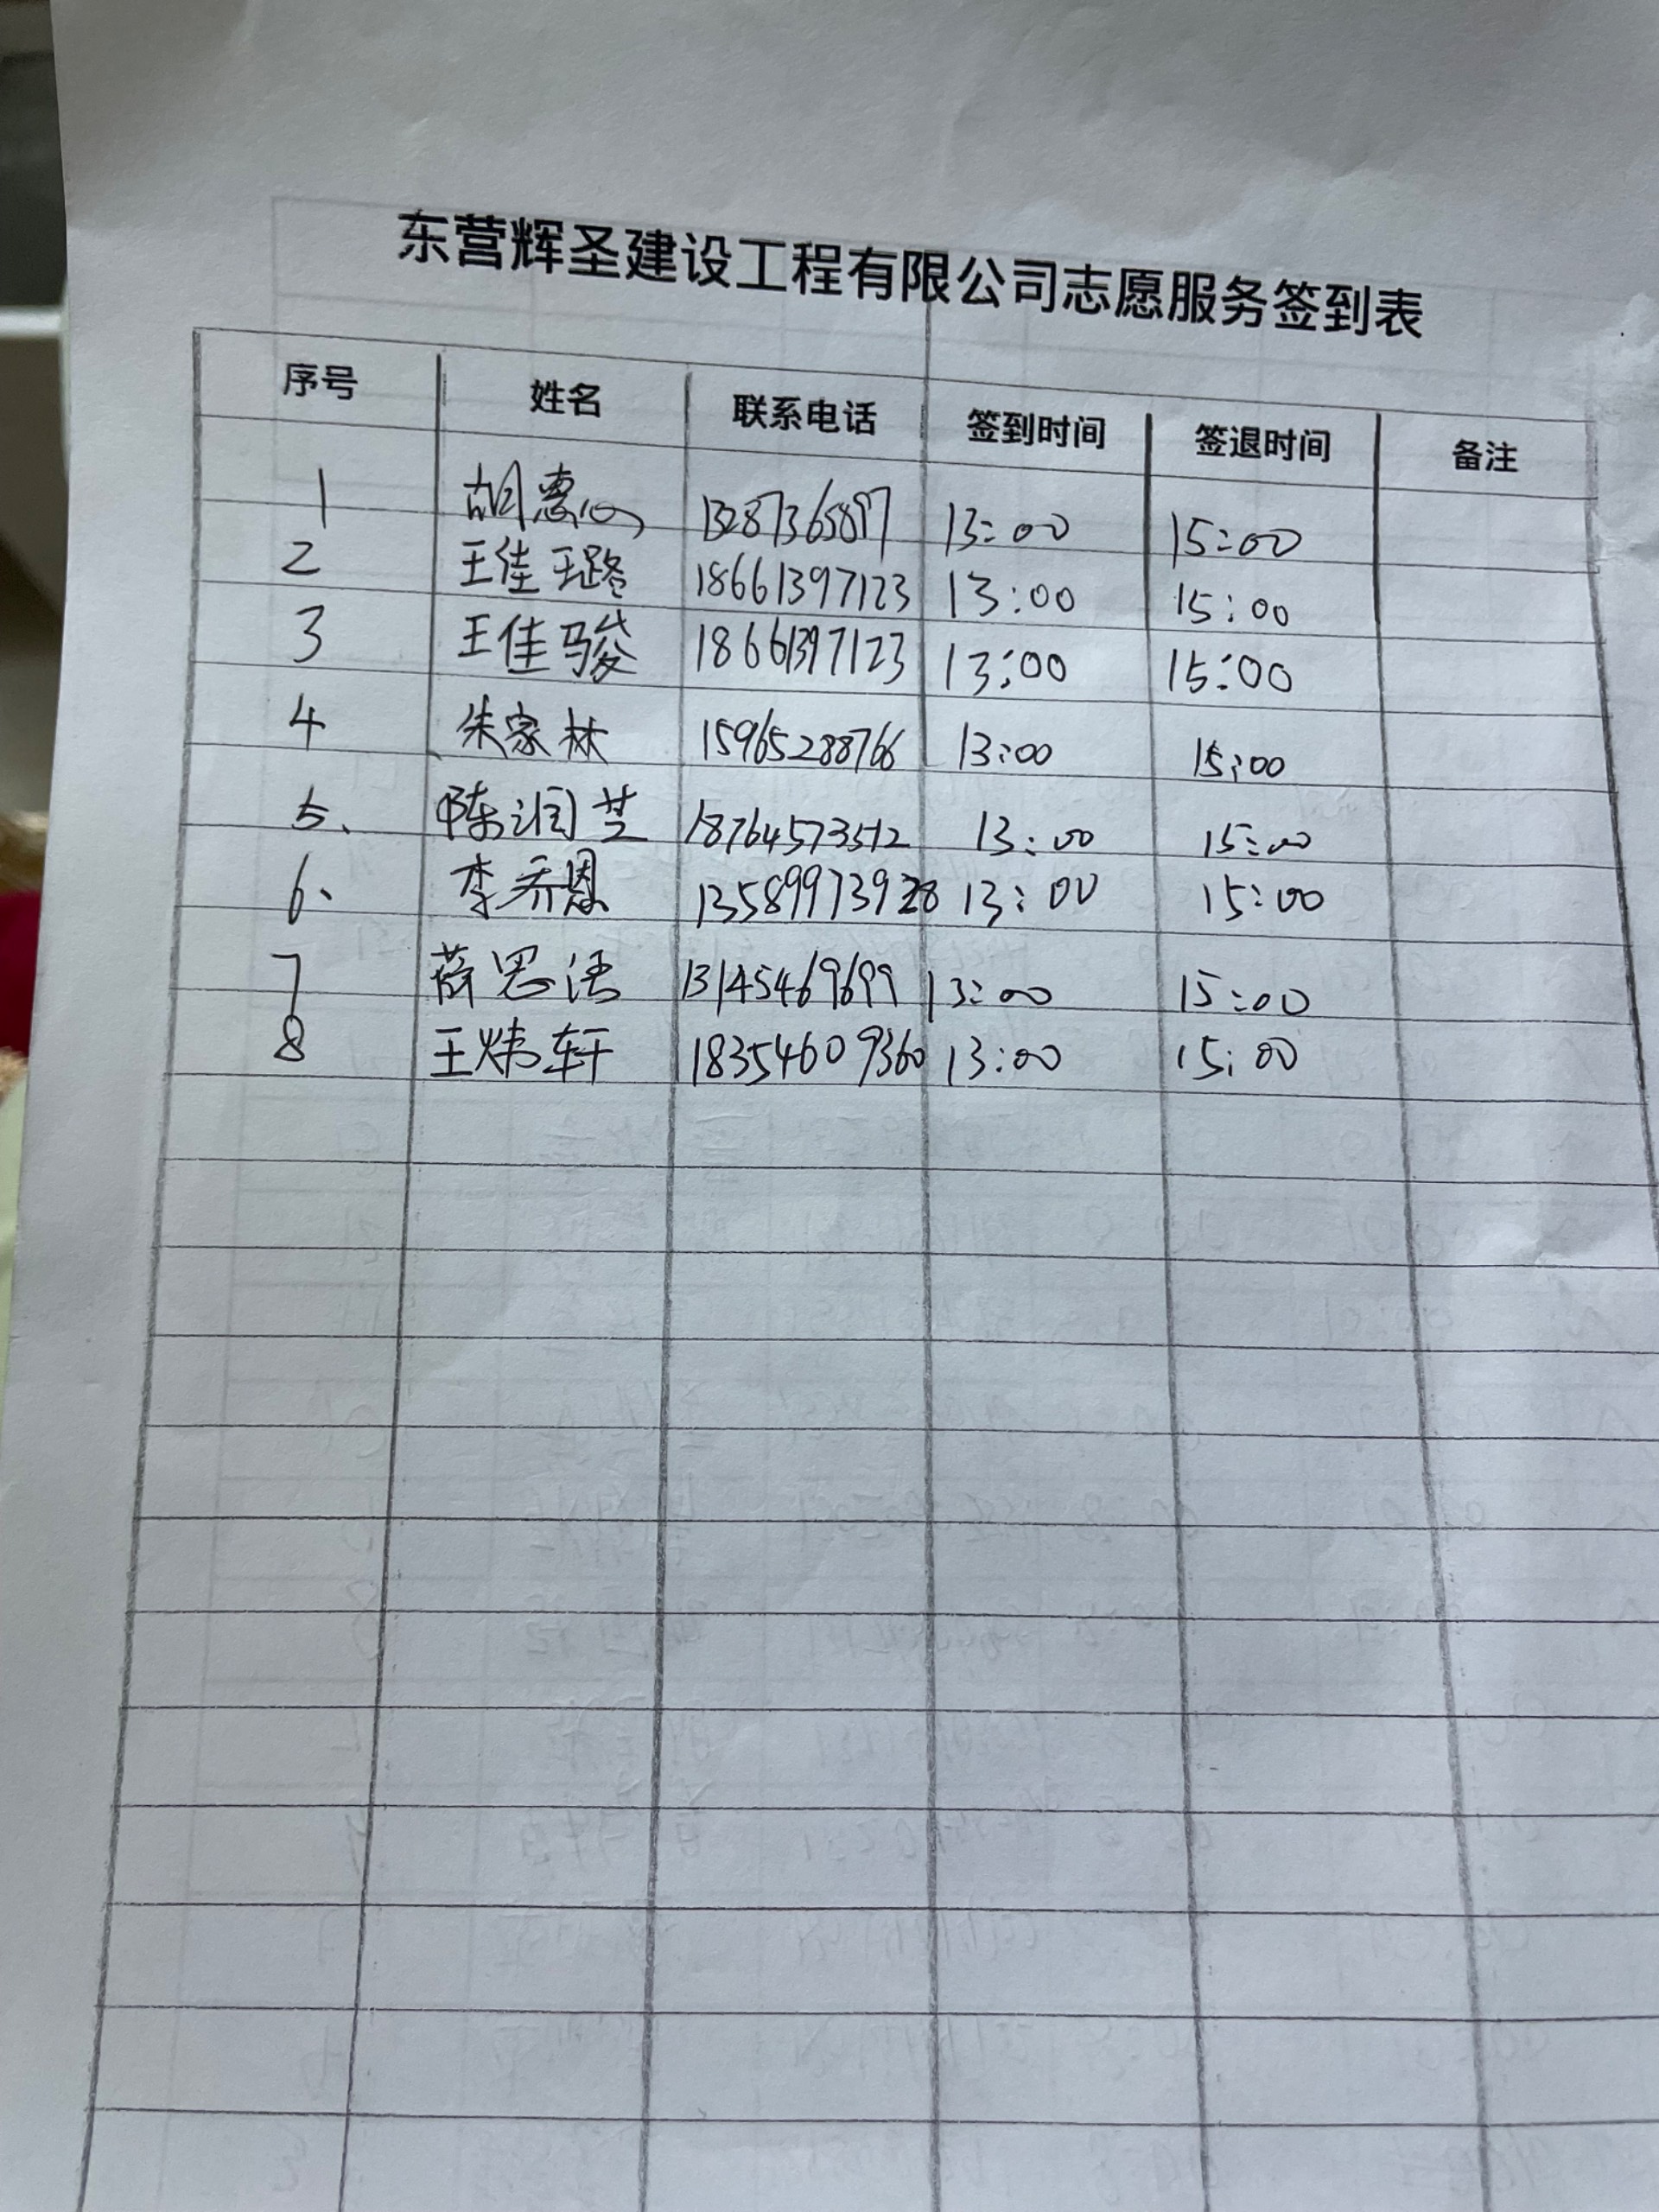 东营辉圣建设工程有限公司志愿服务签到表
序号 姓名 联系电话 签到时间 签退时间 备注
1 胡惠心 13287365897 13:00 15:00
2 王佳璐 18661397123 13:00 15:00
3 王佳骏 18661397123 13:00 15:00
4 朱家林 15965288766 13:00 15:00
5、 陈润芝 18764573512 13:00 15:00
6、 李乔恩 13589973928 13:00 15:00
7 薛思洁 13145469699 13:00 15:00
8 王炜轩 18354609360 13:00 15:00